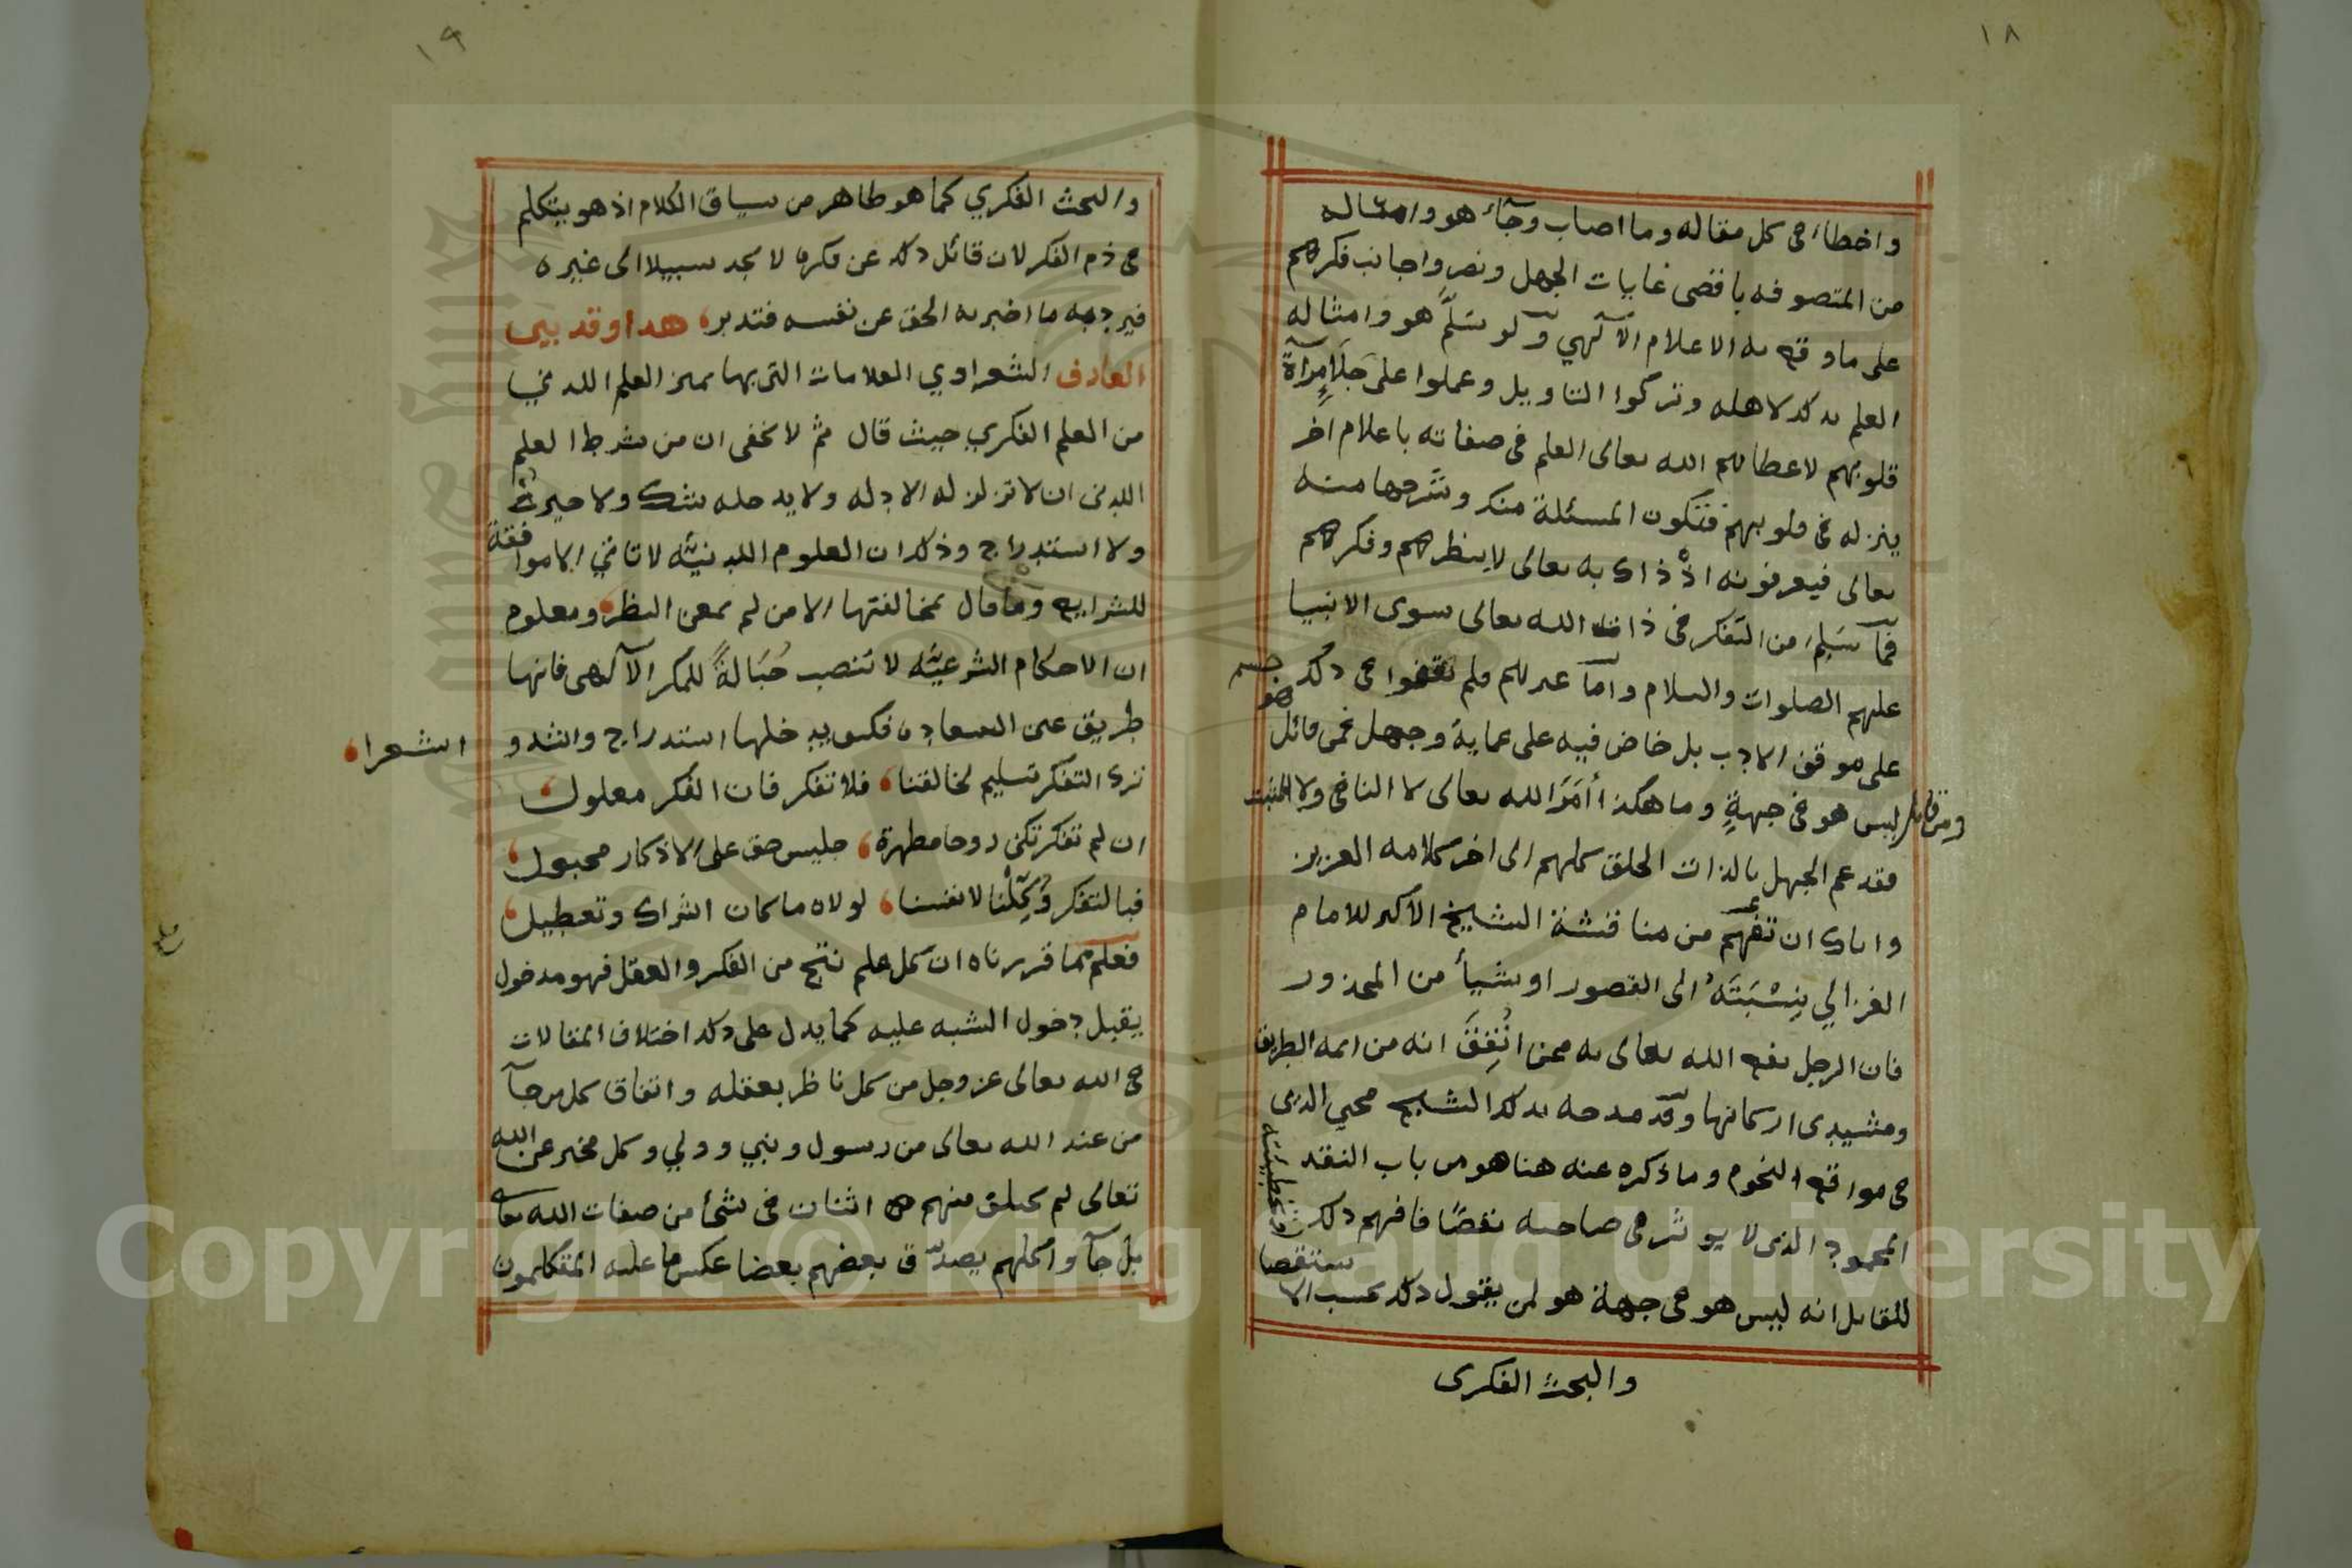 ١٨
واخطاء في كل مقاله وما اصاب وجاء هو وامثاله
من المتصوفه باقصى غايات الجهل ونصروا جانب فكرهم
على ما وقع به الاعلام الآلهي ولو سَلّم هو وامثاله
العلم بذلك لاهله وتركوا التاويل وعملوا على جَلَاءِ مِرآة
قلوبهم لاعطاهم الله تعالى العلم في صفاته باعلام اخر
ينزله في قلوبهم فتكون المسئلة منه وشرحها منه
تعالى فيعرفونه اذ ذاك به تعالى لا بنظرهم وفكرهم
فما سَلِمَ من التفكر في ذات الله تعالى سوى الانبيا
عليهم الصلوات والسلام واما غيرهم فلم يقفوا في ذلك
على موقف الادب بل خاض فيه على عماية وجهل فمن قائل هو جسم
ومن قائل ليس هو في جهةٍ وما هكذا أَمَرَ الله تعالى لا النافي ولا المثبت
فقد عم الجهل بالذات الخلق كلهم الى اخر كلامه العزيز
واياك ان تفهم من مناقشة الشيخ الاكبر للامام
الغزالي بِنِسْبَتَهُ الى القصور او شيأ من المحذور
فان الرجل نفع الله تعالى به ممن اتُّفِقَ انه من ايمه الطريق
ومشيدى اركانها وقد مدحه بذلك الشيخ محي الدين
في مواقع النجوم وما ذكره عنه هنا هو من باب النقد
المحمود الذى لا يوثر في صاحبه نقصًا فافهم ذلك وتخطيئته
للقايل انه ليس هو في جهة هو لمن يقول ذلك بحسب الاستقصا
والبحث الفكرى
١٩
والبحث الفكري كما هو ظاهر من سياق الكلام اذ هو يتكلم
في ذم الفكر لان قائل ذلك عن فكره لا يجد سبيلا الى غيره
فيرد به ما اخبر به الحق عن نفسه فتدبر، هذا وقد بين
العارف الشعراوي العلامات التى بها يميز العلم اللدني
من العلم الفكري حيث قال ثم لا يخفى ان من شرط العلم
اللدنى ان لا تزلزله الادله ولا يدخله شك ولا حيرة
ولا استدراج وذلك ان العلوم اللدنيّه لا تاتي الا موافقة
للشرايع وما قال بمخالفتها الا من لم يمعن النظر، ومعلوم
ان الاحكام الشرعيّه لا تنصب حُبَالةً للمكر الآلهى فانها
طريق عين السعاده فكيف يدخلها استدراج وانشدوا شعرا،
ترك التفكر تسليم لخالقنا، فلا تفكر فان الفكر معلول،
ان لم تفكر تكن روحا مطهرة، جليس حق على الاذكار محبول،
فبالتفكر وُكِّلْنا لانفسنا، لولاه ما كان اشراك وتعطيل،
فعلم مما قررناه ان كل علم نتج من الفكر والعقل فهو مدخول
يقبل دخول الشبه عليه كما يدل على ذلك اختلاف المقالات
في الله تعالى عز وجل من كل ناظر بعقله واتفاق كل من جآ
من عند الله تعالى من رسول ونبي وولي وكل مخبر عن الله
تعالى لم يختلق منهم اثنان في شئ من صفات الله تعالى
بل جآوا كلهم يصدّق بعضهم بعضا عكس ما عليه المتكلمون